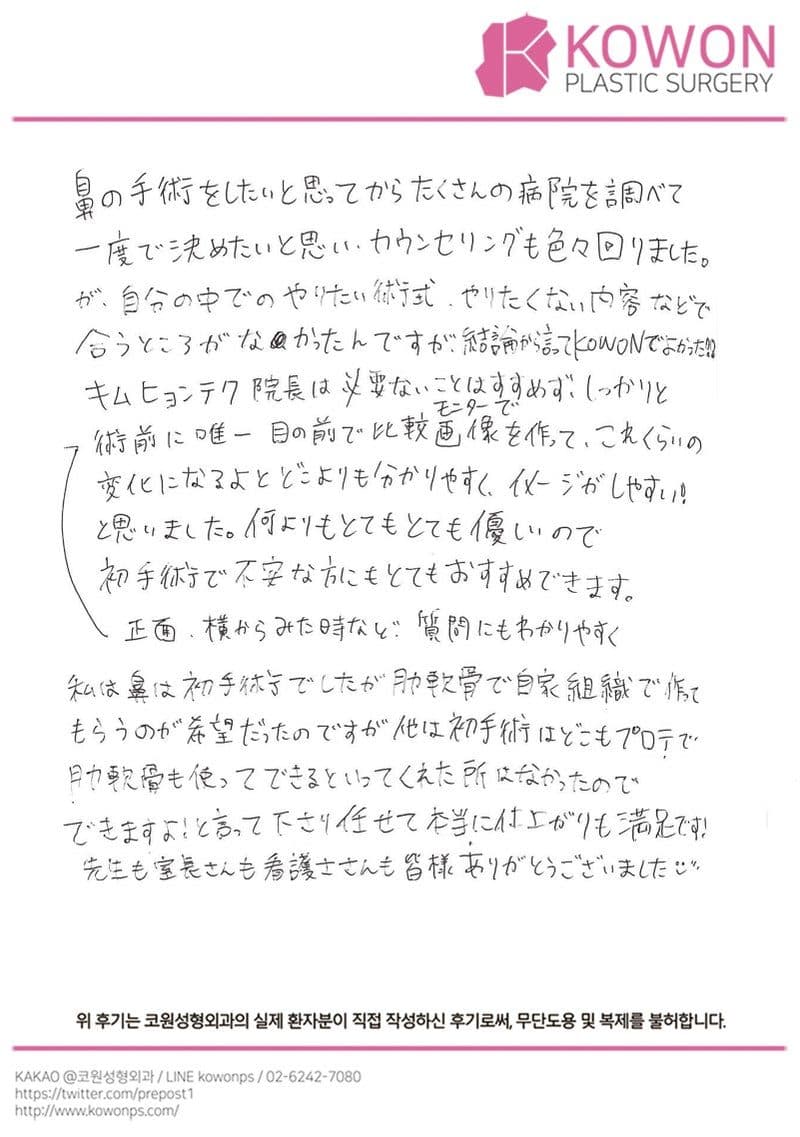 KOWON
PLASTIC SURGERY
鼻の手術をしたいと思ってからたくさんの病院を調べて
一度で決めたいと思い、カウンセリングも色々回りました。
が、自分の中でのやりたい術式、やりたくない内容などで
合うところがなかったんですが、結論から言ってKOWONでよかった!!
キムヒョンテク院長は必要ないことはすすめず、しっかりと
モニターで
術前に唯一目の前で比較画像を作って、これくらいの
変化になるよとどこよりも分かりやすく、イメージがしやすい!
と思いました。何よりもとてもとても優しいので
初手術で不安な方にもとてもおすすめできます。
正面、横からみた時など、質問にもわかりやすく
私は鼻は初手術でしたが肋軟骨で自家組織で作って
もらうのが希望だったのですが他は初手術はどこもプロテで
肋軟骨も使ってできるといってくれた所はなかったので
できますよ!と言って下さり任せて本当に仕上がりも満足です!
先生も室長さんも看護士さんも皆様ありがとうございました
위 후기는 코원성형외과의 실제 환자분이 직접 작성하신 후기로써, 무단도용 및 복제를 불허합니다.
KAKAO @코원성형외과 / LINE kowonps / 02-6242-7080
https://twitter.com/prepost1
http://www.kowonps.com/